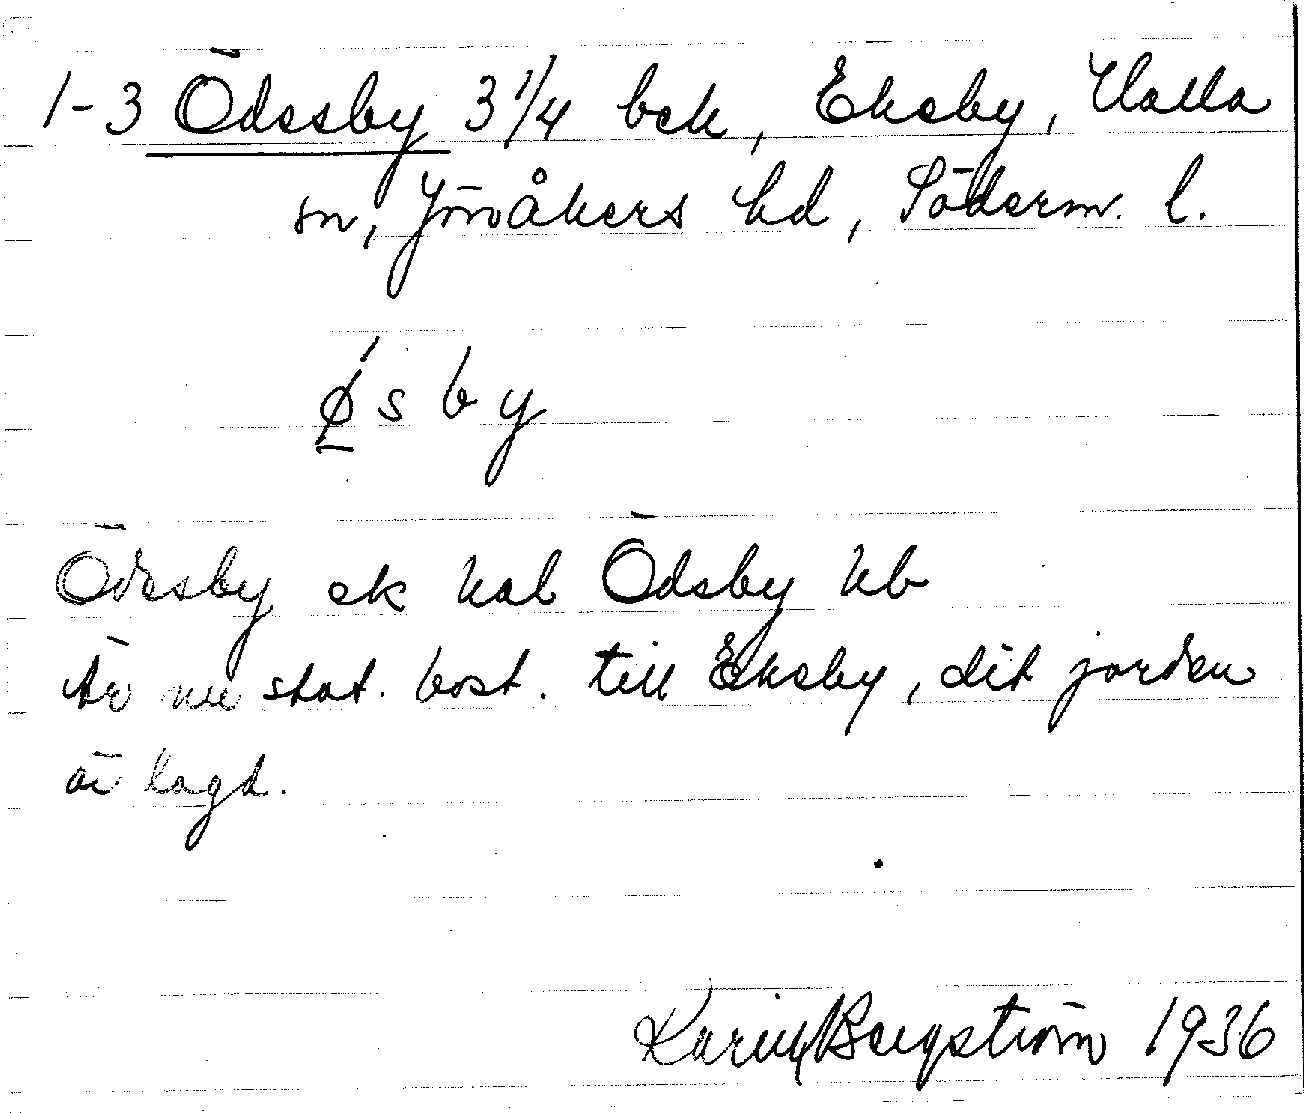 1-3 Ödesby 3 1/4 bek, Eksby, Halla
sn, Jönåkers hd, Söderm. l.
ǿsby
Ödesby ek hal Ödsby hb
Är nu stat. bost. till Eksby, dit jorden
är lagd.
Karin Bergström 1936